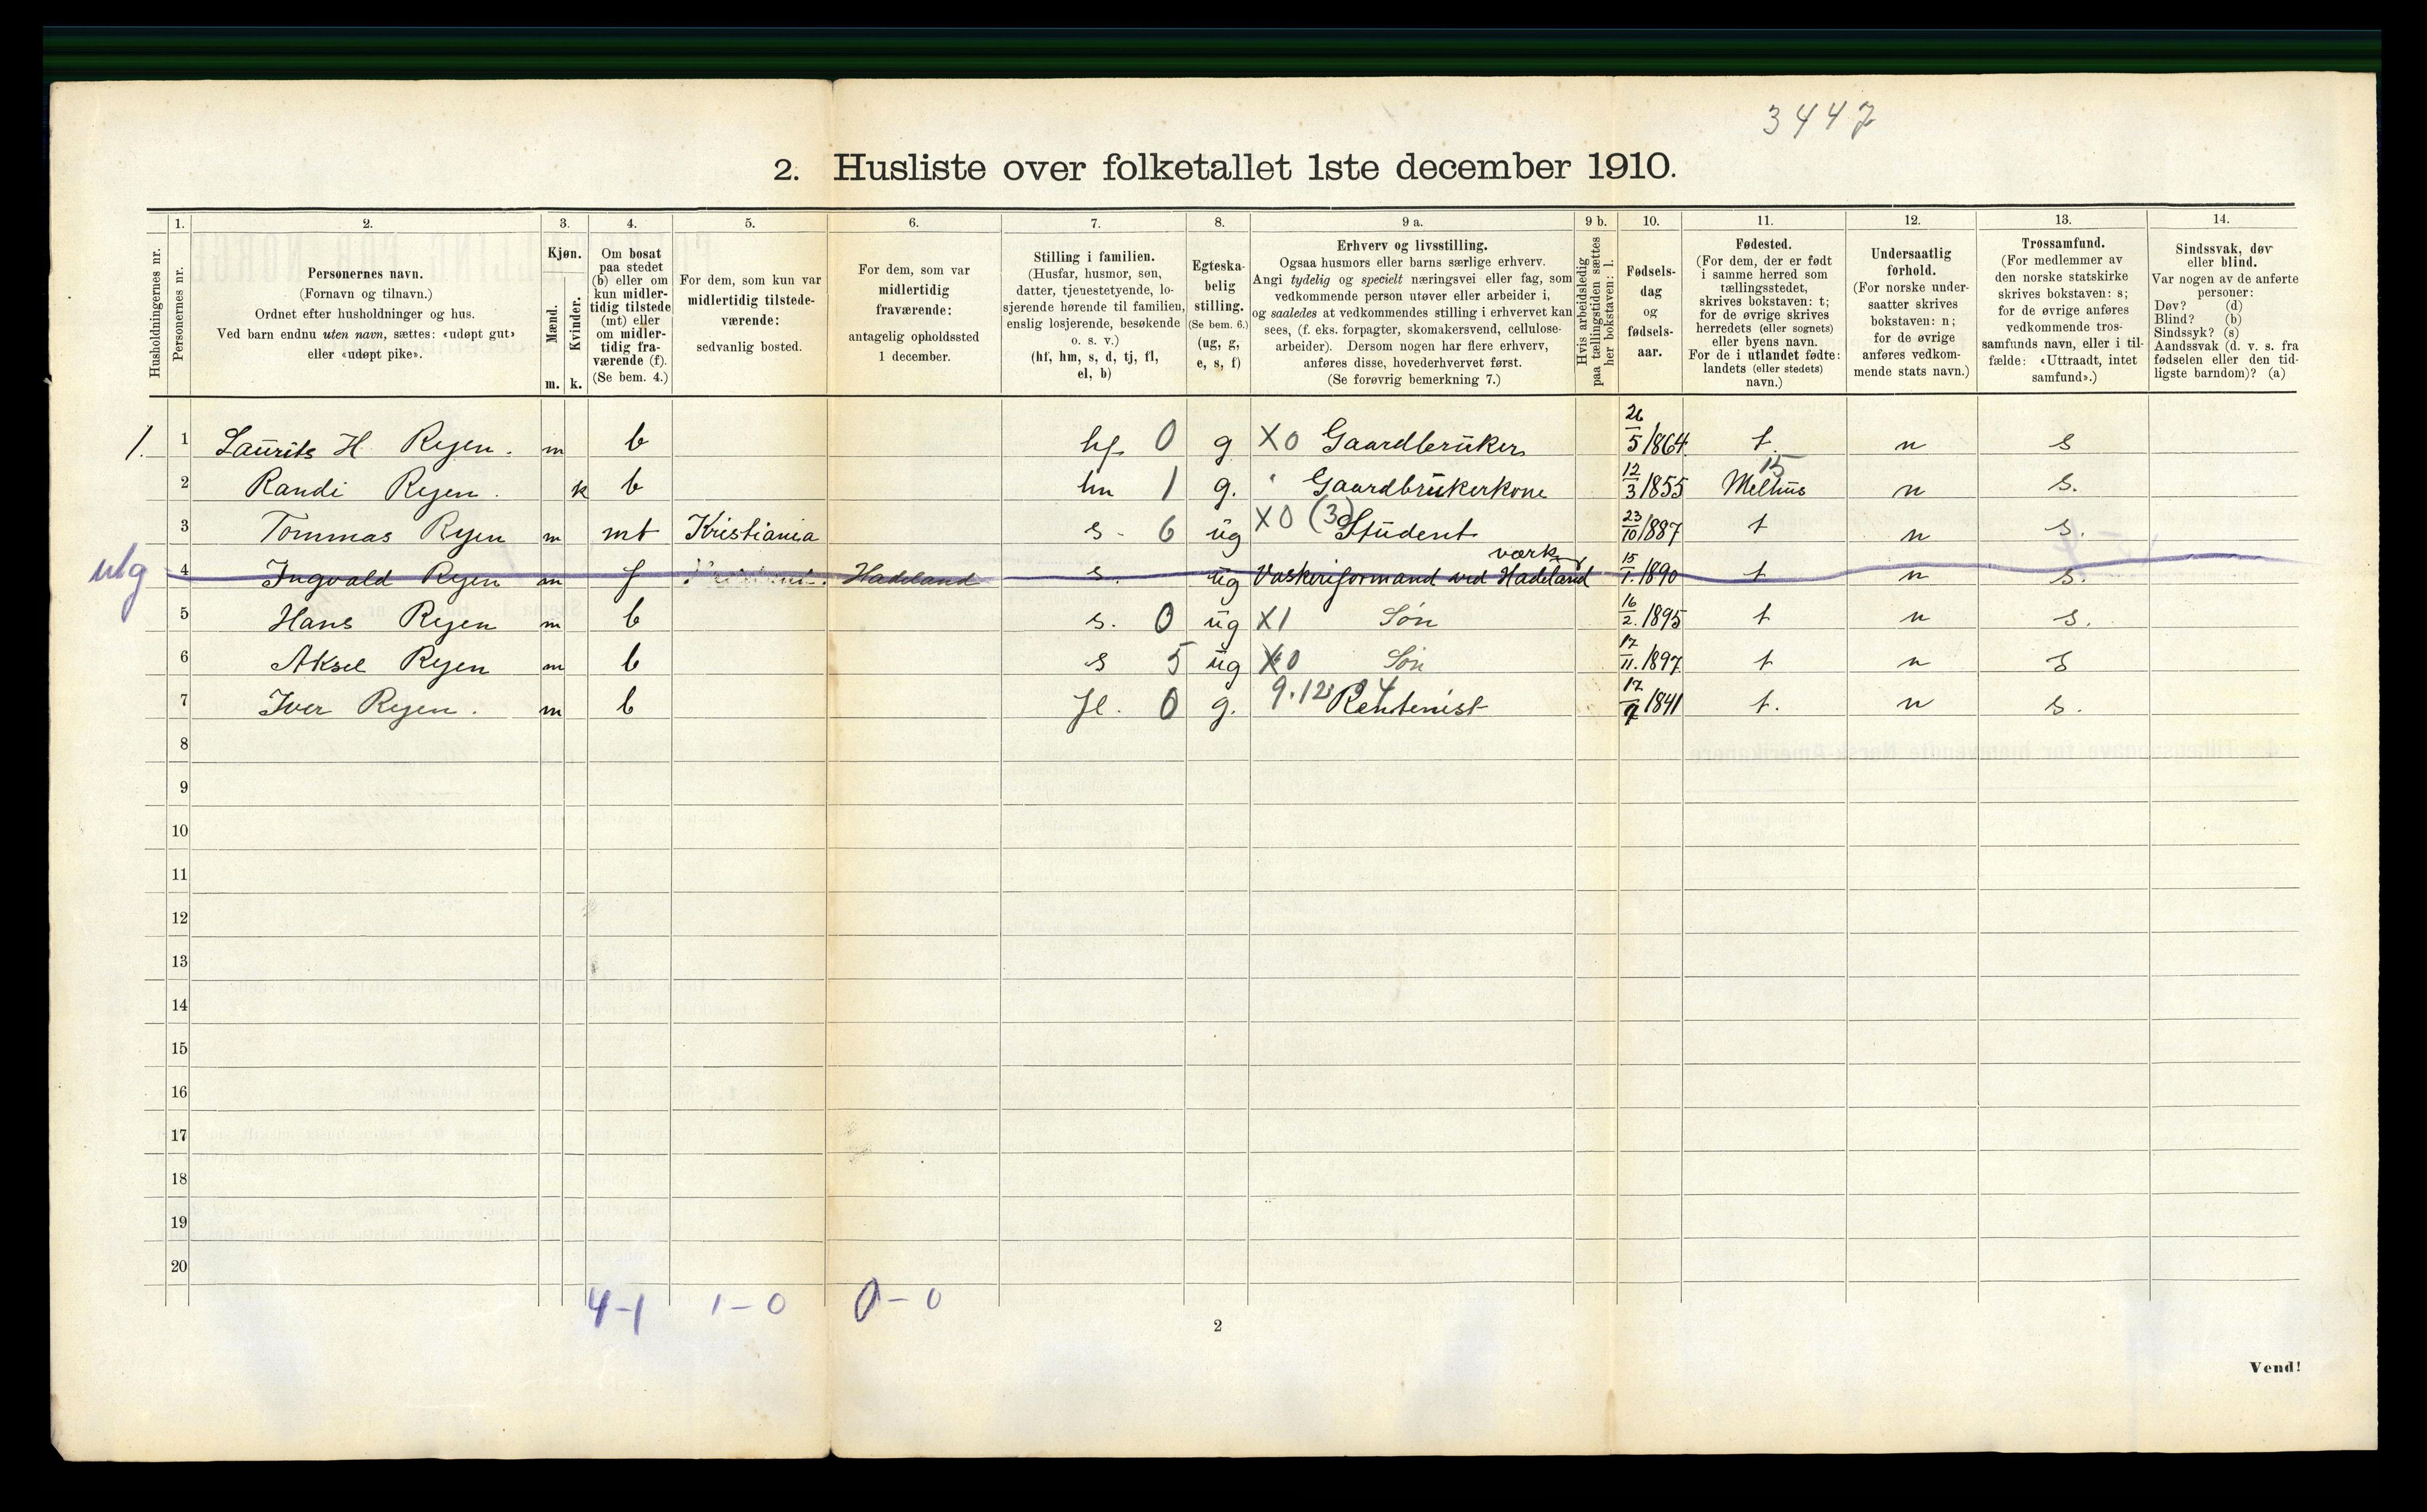 3447
2. Husliste over folketallet 1ste december 1910.
1. 2. 3. 4. 5. 6. 7. 8. 9 a. 9 b. 10. 11. 12. 13. 14.
Husholdningernes nr.
Personernes nr.
Personernes navn.
(Fornavn og tilnavn.)
Ordnet efter husholdninger og hus.
Ved barn endnu uten navn, sættes: «udøpt gut»
eller «udøpt pike».
Kjøn.
Mænd.
Kvinder.
m. k.
Om bosat
paa stedet
(b) eller om
kun midler-
tidig tilstede
(mt) eller
om midler-
tidig fra-
værende (f).
(Se bem. 4.)
For dem, som kun var
midlertidig tilstede-
værende:
sedvanlig bosted.
For dem, som var
midlertidig
fraværende:
antagelig opholdssted
1 december.
Stilling i familien.
(Husfar, husmor, søn,
datter, tjenestetyende, lo-
sjerende hørende til familien,
enslig losjerende, besøkende
o. s. v.)
(hf, hm, s, d, tj, fl,
el, b)
Egteska-
belig
stilling.
(Se bem. 6.)
(ug, g,
e, s, f)
Erhverv og livsstilling.
Ogsaa husmors eller barns særlige erhverv.
Angi tydelig og specielt næringsvei eller fag, som
vedkommende person utøver eller arbeider i,
og saaledes at vedkommendes stilling i erhvervet kan
sees, (f. eks. forpagter, skomakersvend, cellulose-
arbeider). Dersom nogen har flere erhverv,
anføres disse, hovederhvervet først.
(Se forøvrig bemerkning 7.)
Hvis arbeidsledig
paa tællingstiden sættes
her bokstaven: l.
Fødsels-
dag
og
fødsels-
aar.
Fødested.
(For dem, der er født
i samme herred som
tællingsstedet,
skrives bokstaven: t;
for de øvrige skrives
herredets (eller sognets)
eller byens navn.
For de i utlandet fødte:
landets (eller stedets)
navn.)
Undersaatlig
forhold.
(For norske under-
saatter skrives
bokstaven: n;
for de øvrige
anføres vedkom-
mende stats navn.)
Trossamfund.
(For medlemmer av
den norske statskirke
skrives bokstaven: s;
for de øvrige anføres
vedkommende tros-
samfunds navn, eller i til-
fælde: «Uttraadt, intet
samfund».)
Sindssvak, døv
eller blind.
Var nogen av de anførte
personer:
Døv? (d)
Blind? (b)
Sindssyk? (s)
Aandssvak (d. v. s. fra
fødselen eller den tid-
ligste barndom)? (a)
1. 1 Laurits H Ryen. m b hf 0 g X0 Gaardbruker 26/5 1864. t. n s
2 Randi Ryen. k b hm 1 g. Gaardbrukerkone 12/3 1855 Melhus 15 n s.
3 Tommas Ryen m mt Kristiania s - 6 ug X0 (3) Student 23/10 1887 t n s.
utg 4 Ingvald Ryen m f Hadeland s. ug Vaskeriformand ved Hadeland værk 15/1. 1890 t n s.
5 Hans Ryen m b s. 0 ug X1 Søn 16/2. 1895 t n s.
6 Aksel Ryen m b s 5 ug X0 Søn 17/11. 1897 t n s
7 Iver Ryen. m b fl. 0 g. 9.12 Rentenist 17/9 1841 t. n s.
8
9
10
11
12
13
14
15
16
17
18
19
20
4-1 1-0 0-0
2
Vend!